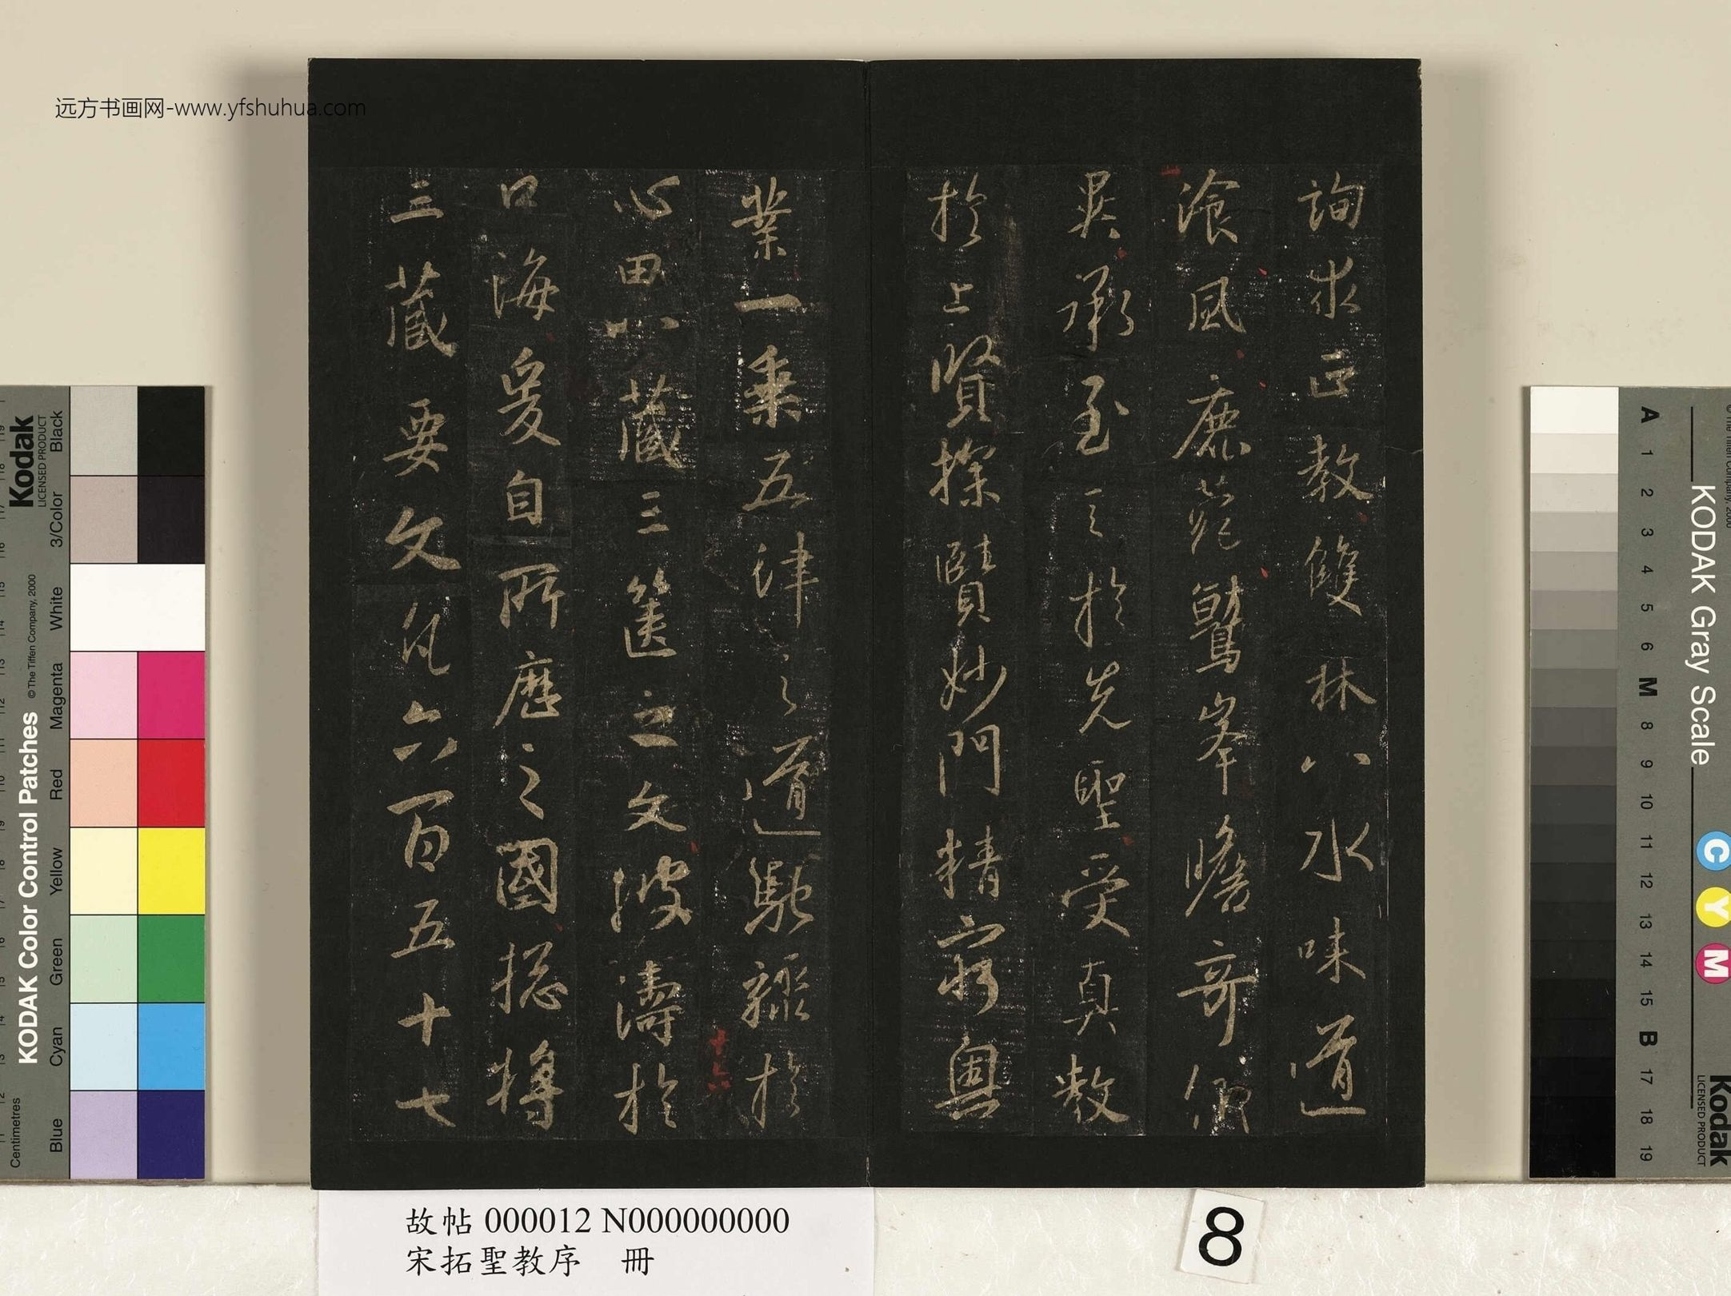 詢求正教雙林八水味道
湌風鹿苑鷲峯瞻奇仰
異承至言於先聖受真教
於上賢探賾妙門精窮奧
業一乘五律之道馳驟於
心田八藏三篋之文波濤於
口海爰自所歷之國揔將
三藏要文凡六百五十七
十六
远方书画网-www.yfshuhua.com
故帖 000012 N000000000
宋拓聖教序 冊
8
KODAK Color Control Patches
© The Tiffen Company, 2000
Kodak
LICENSED PRODUCT
Centimetres
Blue
Cyan
Green
Yellow
Red
Magenta
White
3/Color
Black
KODAK Gray Scale
C
Y
M
Kodak
LICENSED PRODUCT
A 1 2 3 4 5 6 M 8 9 10 11 12 13 14 15 B 17 18 19